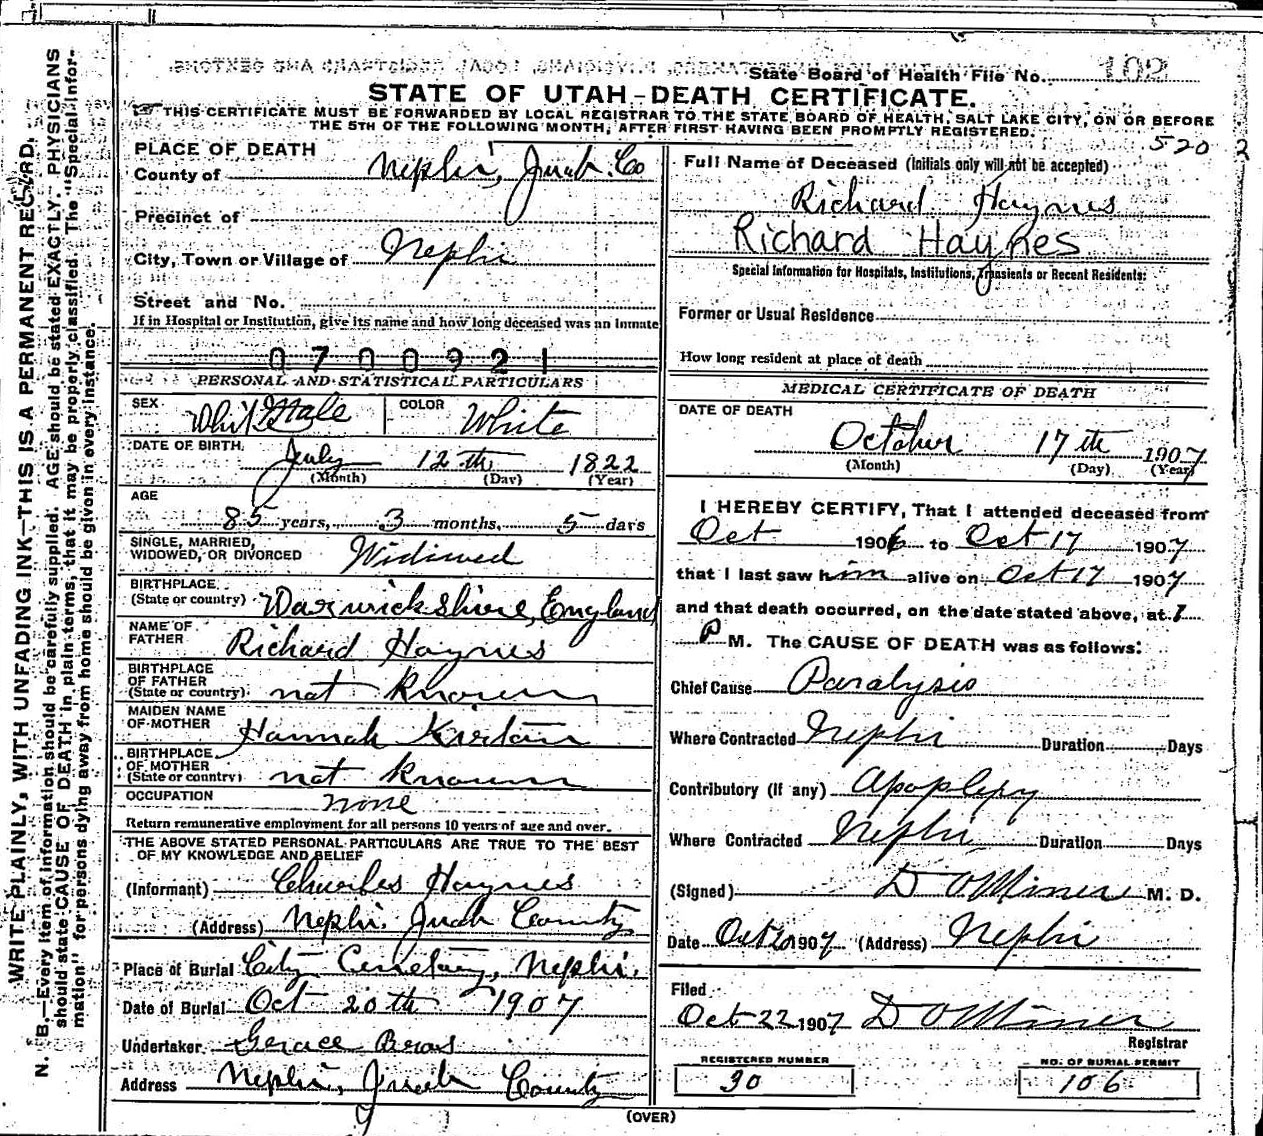 State Board of Health File No. 102
STATE OF UTAH-DEATH CERTIFICATE.
THIS CERTIFICATE MUST BE FORWARDED BY LOCAL REGISTRAR TO THE STATE BOARD OF HEALTH, SALT LAKE CITY, ON OR BEFORE
THE 5TH OF THE FOLLOWING MONTH, AFTER FIRST HAVING BEEN PROMPTLY REGISTERED.
5202
WRITE PLAINLY, WITH UNFADING INK—THIS IS A PERMANENT RECORD.
N. B.—Every item of information should be carefully supplied. AGE should be stated EXACTLY. PHYSICIANS
should state CAUSE OF DEATH in plain terms, that it may be properly classified. The "Special Infor-
mation" for persons dying away from home should be given in every instance.
PLACE OF DEATH
County of Nephi, Juab Co
Precinct of
City, Town or Village of Nephi
Street and No.
If in Hospital or Institution, give its name and how long deceased was an inmate
0700921
PERSONAL AND STATISTICAL PARTICULARS
SEX Male COLOR White
DATE OF BIRTH July 12th 1822
(Month) (Day) (Year)
AGE
85 years, 3 months, 5 days
SINGLE, MARRIED,
WIDOWED, OR DIVORCED Widowed
BIRTHPLACE
(State or country) Warwickshire, England
NAME OF
FATHER Richard Haynes
BIRTHPLACE
OF FATHER
(State or country) not known
MAIDEN NAME
OF MOTHER Hannah
BIRTHPLACE
OF MOTHER
(State or country) not known
OCCUPATION none
Return remunerative employment for all persons 10 years of age and over.
THE ABOVE STATED PERSONAL PARTICULARS ARE TRUE TO THE BEST
OF MY KNOWLEDGE AND BELIEF
(Informant) Charles Haynes
(Address) Nephi Juab County
Place of Burial City Cemetary, Nephi.
Date of Burial Oct 20th 1907
Undertaker Bros
Address Nephi, Juab County
Full Name of Deceased (Initials only will not be accepted)
Richard Haynes
Richard Haynes
Special Information for Hospitals, Institutions, Transients or Recent Residents:
Former or Usual Residence
How long resident at place of death
MEDICAL CERTIFICATE OF DEATH
DATE OF DEATH
October 17th 1907
(Month) (Day) (Year)
I HEREBY CERTIFY, That I attended deceased from
Oct 1906 to Oct 17 1907
that I last saw him alive on Oct 17 1907
and that death occurred, on the date stated above, at
P M. The CAUSE OF DEATH was as follows:
Chief Cause Paralysis
Where Contracted Nephi Duration Days
Contributory (If any) Apoplexy
Where Contracted Nephi Duration Days
(Signed) D O Miner M. D.
Date Oct 20 1907 (Address) Nephi
Filed
Oct 22 1907 D O Miner
Registrar
REGISTERED NUMBER
30
NO. OF BURIAL PERMIT
106
(OVER)